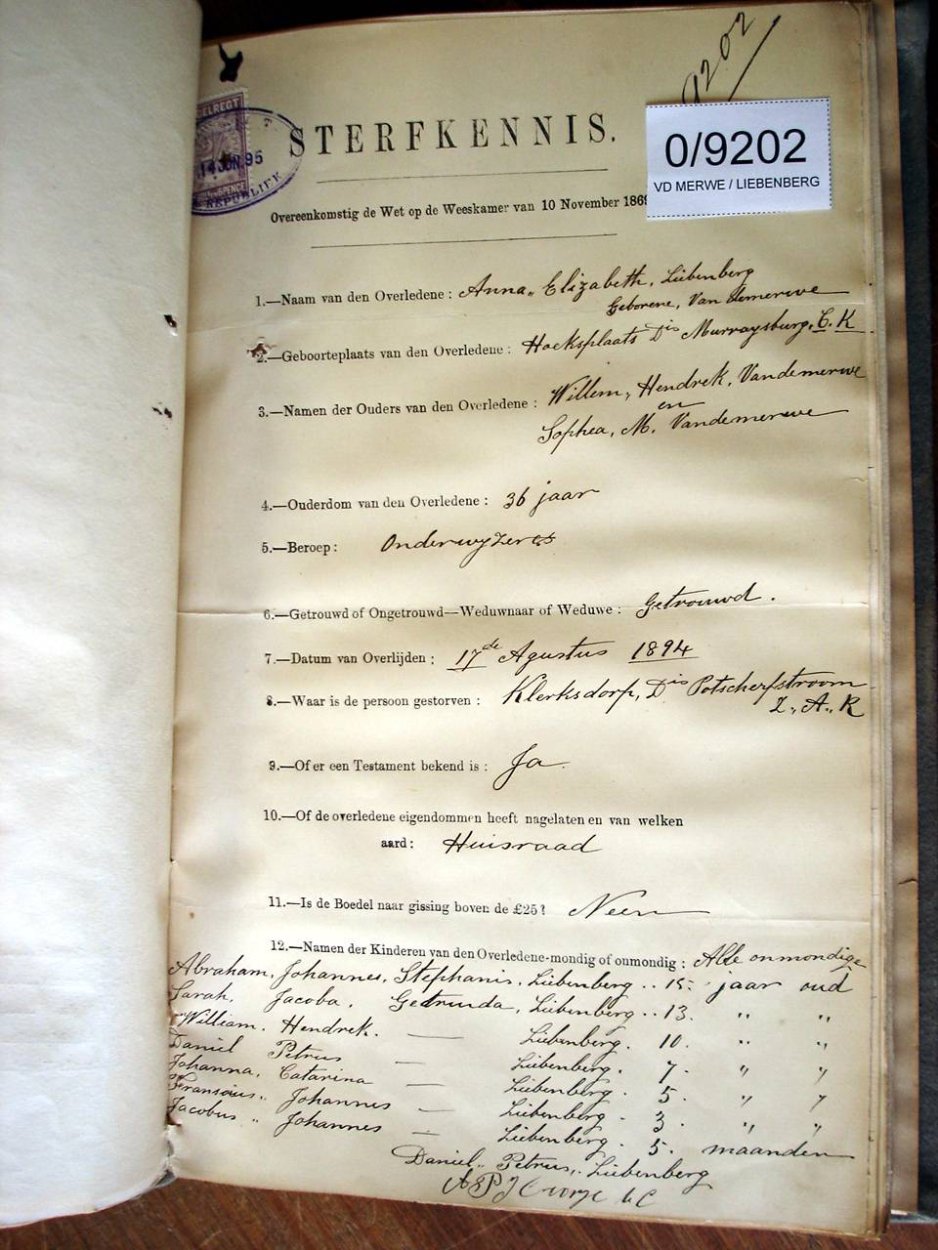 9202
ELREGT
14 JUN. 95
REPUBLIEK
STERFKENNIS.
0/9202
VD MERWE / LIEBENBERG
Overeenkomstig de Wet op de Weeskamer van 10 November 1869
1.—Naam van den Overledene: Anna, Elizabeth, Liebenberg
Geborene, Van demerwe
2.—Geboorteplaats van den Overledene: Hoeksplaats Dis Murraysburg, C. K
3.—Namen der Ouders van den Overledene: Willem, Hendrek, Vandemerwe
en
Sophea, M. Vandemerwe
4.—Ouderdom van den Overledene: 36 jaar
5.—Beroep: Onderwyzeres
6.—Getrouwd of Ongetrouwd—Weduwnaar of Weduwe: Getrouwd.
7.—Datum van Overlijden: 17de Agustus 1894
8.—Waar is de persoon gestorven: Klerksdorp, Dis Potscherfstroom
Z,, A,, R
9.—Of er een Testament bekend is: Ja
10.—Of de overledene eigendommen heeft nagelaten en van welken
aard: Huisraad
11.—Is de Boedel naar gissing boven de £25? Neen
12.—Namen der Kinderen van den Overledene-mondig of onmondig: Alle onmondige
Abraham, Johannes, Stephanis, Liebenberg .. 15 jaar oud
Sarah, Jacoba, Getrunda, Liebenberg .. 13. " "
William. Hendrek. — Liebenberg. 10. " "
Daniel Petrus — Liebenberg. 7. " "
Johanna, Catarina — Liebenberg. 5. " "
Fransois,, Johannes — Liebenberg. 3. " "
Jacobus,, Johannes — Liebenberg. 5. maanden
Daniel,, Petrus,, Liebenberg